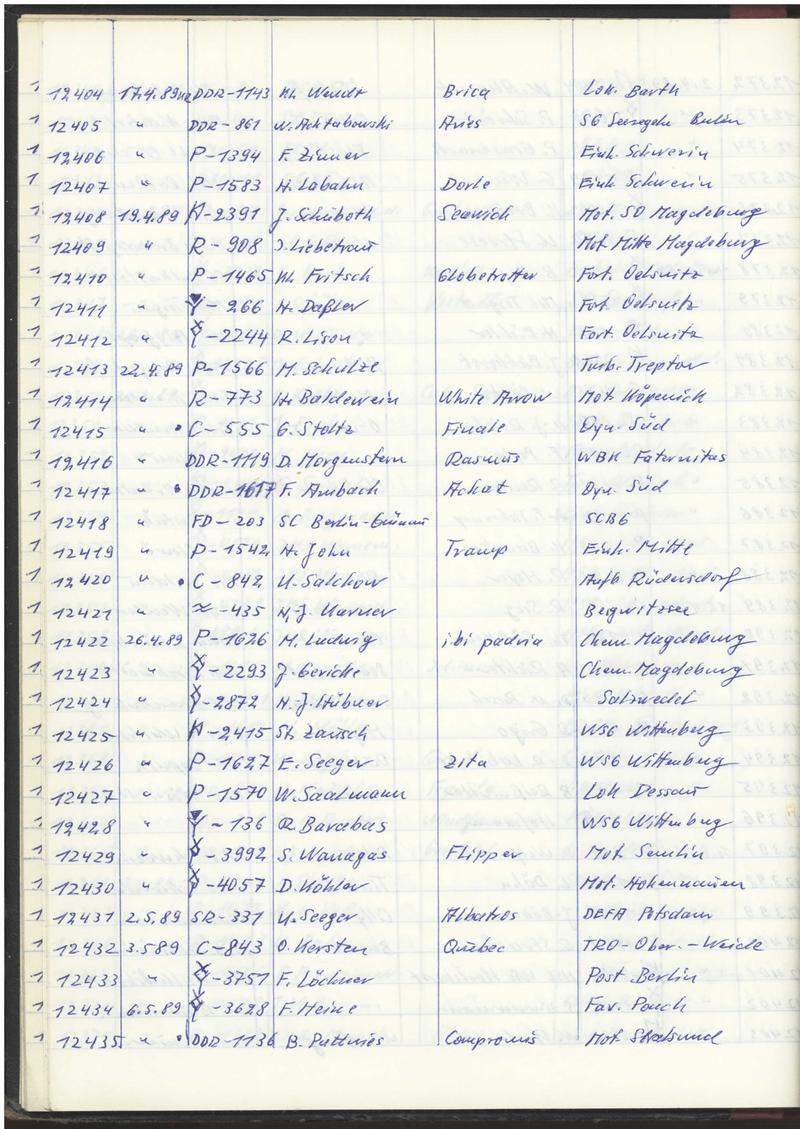 1 12404 17.4.89 DDR-1143 M. Wendt Brica Lok. Barth
1 12405 " DDR-861 W. Achtabowski Aries SG Seeregeln Berlin
1 12406 " P-1394 F. Zinner Einh. Schwerin
1 12407 " P-1583 H. Labahn Dorle Einh. Schwerin
1 12408 19.4.89 H-2391 J. Schuboth Seewich Mot. SO Magdeburg
1 12409 " R-908 J. Liebetraut Mot. Mitte Magdeburg
1 12410 " P-1465 M. Fritsch Globetrotter Fort. Oelsnitz
1 12411 " -266 H. Daßler Fort. Oelsnitz
1 12412 " -2244 R. Lison Fort. Oelsnitz
1 12413 22.4.89 P-1566 M. Schulze Turb. Treptow
1 12414 " R-773 H. Baldewein White Arrow Mot. Köpenick
1 12415 " • C-555 G. Stoltz Finale Dyn. Süd
1 12416 " DDR-1119 D. Morgenstern Rasmus WBK Faternitas
1 12417 " • DDR-1617 F. Ambach Achat Dyn. Süd
1 12418 " FD-203 SC Berlin-Grünau SCBG
1 12419 " P-1542 H. John Tramp Einh. Mitte
1 12420 " • C-842 U. Salchow Aufb Rüdersdorf
1 12421 " ≈-435 H. J. Karner Bergwitzsee
1 12422 26.4.89 P-1626 M. Ludwig ibi padria Chem. Magdeburg
1 12423 " -2293 J. Gericke Chem. Magdeburg
1 12424 " -2872 H. J. Hübner Salzwedel
1 12425 " H-2415 St. Zausch WSG Wittenberg
1 12426 " P-1627 E. Seeger Zita WSG Wittenberg
1 12427 " P-1570 W. Saalmann Lok Dessau
1 12428 " -136 R. Barabas WSG Wittenberg
1 12429 " -3992 S. Wanagas Flipper Mot. Semlin
1 12430 " -4057 D. Köhler Mot. Hohennauen
1 12431 2.5.89 SR-331 U. Seeger Albatros DEFA Potsdam
1 12432 3.5.89 C-843 O. Kersten Quebec TRO-Ober.-Weide
1 12433 " -3751 F. Löchner Post Berlin
1 12434 6.5.89 -3628 F. Heine Fav. Pouch
1 12435 " • DDR-1136 B. Puttnies Compromis Mot. Stralsund